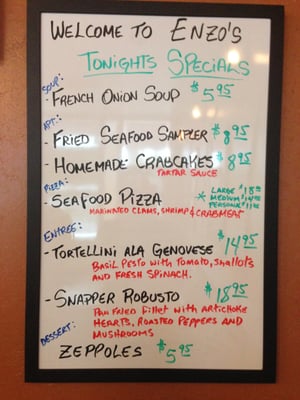 WELCOME TO ENZO'S
TONIGHTS SPECIALS
SOUP:
- FRENCH ONION SOUP $5.95
APT:
- FRIED SEAFOOD SAMPLER $8.95
- HOMEMADE CRABCAKES $8.95
TARTAR SAUCE
PIZZA:
- SEAFOOD PIZZA
MARINATED CLAMS, SHRIMP & CRABMEAT
* LARGE $18.95
MEDIUM $14.95
PERSONAL
ENTREE:
- TORTELLINI ALA GENOVESE $14.95
BASIL PESTO WITH TOMATO, SHALLOTS
AND FRESH SPINACH.
- SNAPPER ROBUSTO $18.95
PAN FRIED FILLET WITH ARTICHOKE
HEARTS, ROASTED PEPPERS AND
MUSHROOMS
DESSERT:
ZEPPOLES $5.95